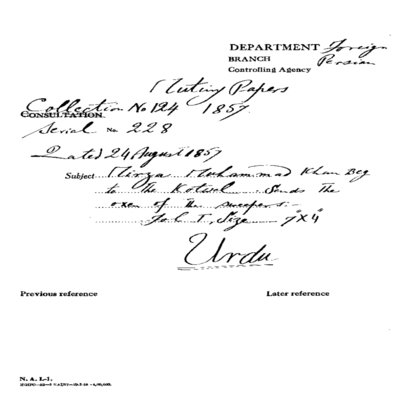 DEPARTMENT Foreign
BRANCH Persian
Controlling Agency
Mutiny Papers
Collection No 124 1857
CONSULTATION
Serial No 228
Dated 24 August 1857
Subject Mirza Muhammad Khan Beg
to The Kotwal. Sends The
oxen of The sweepers:-
Fol. 1, Size 7" X 4"
Urdu
Previous reference Later reference
N. A. I.-1.